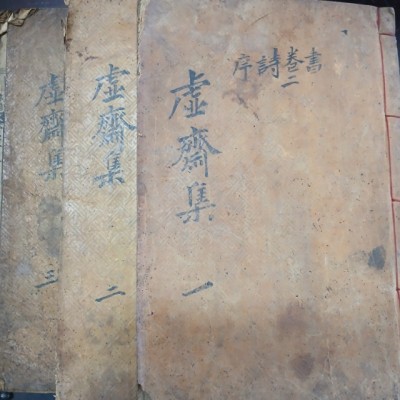 書卷二詩序
虛齋集 一
虛齋集 二
虛齋集 三